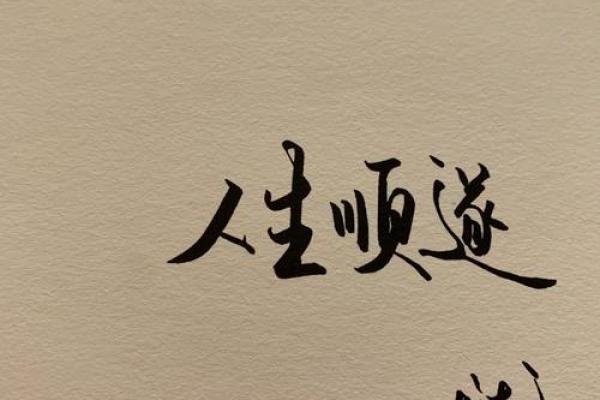 人生順遂